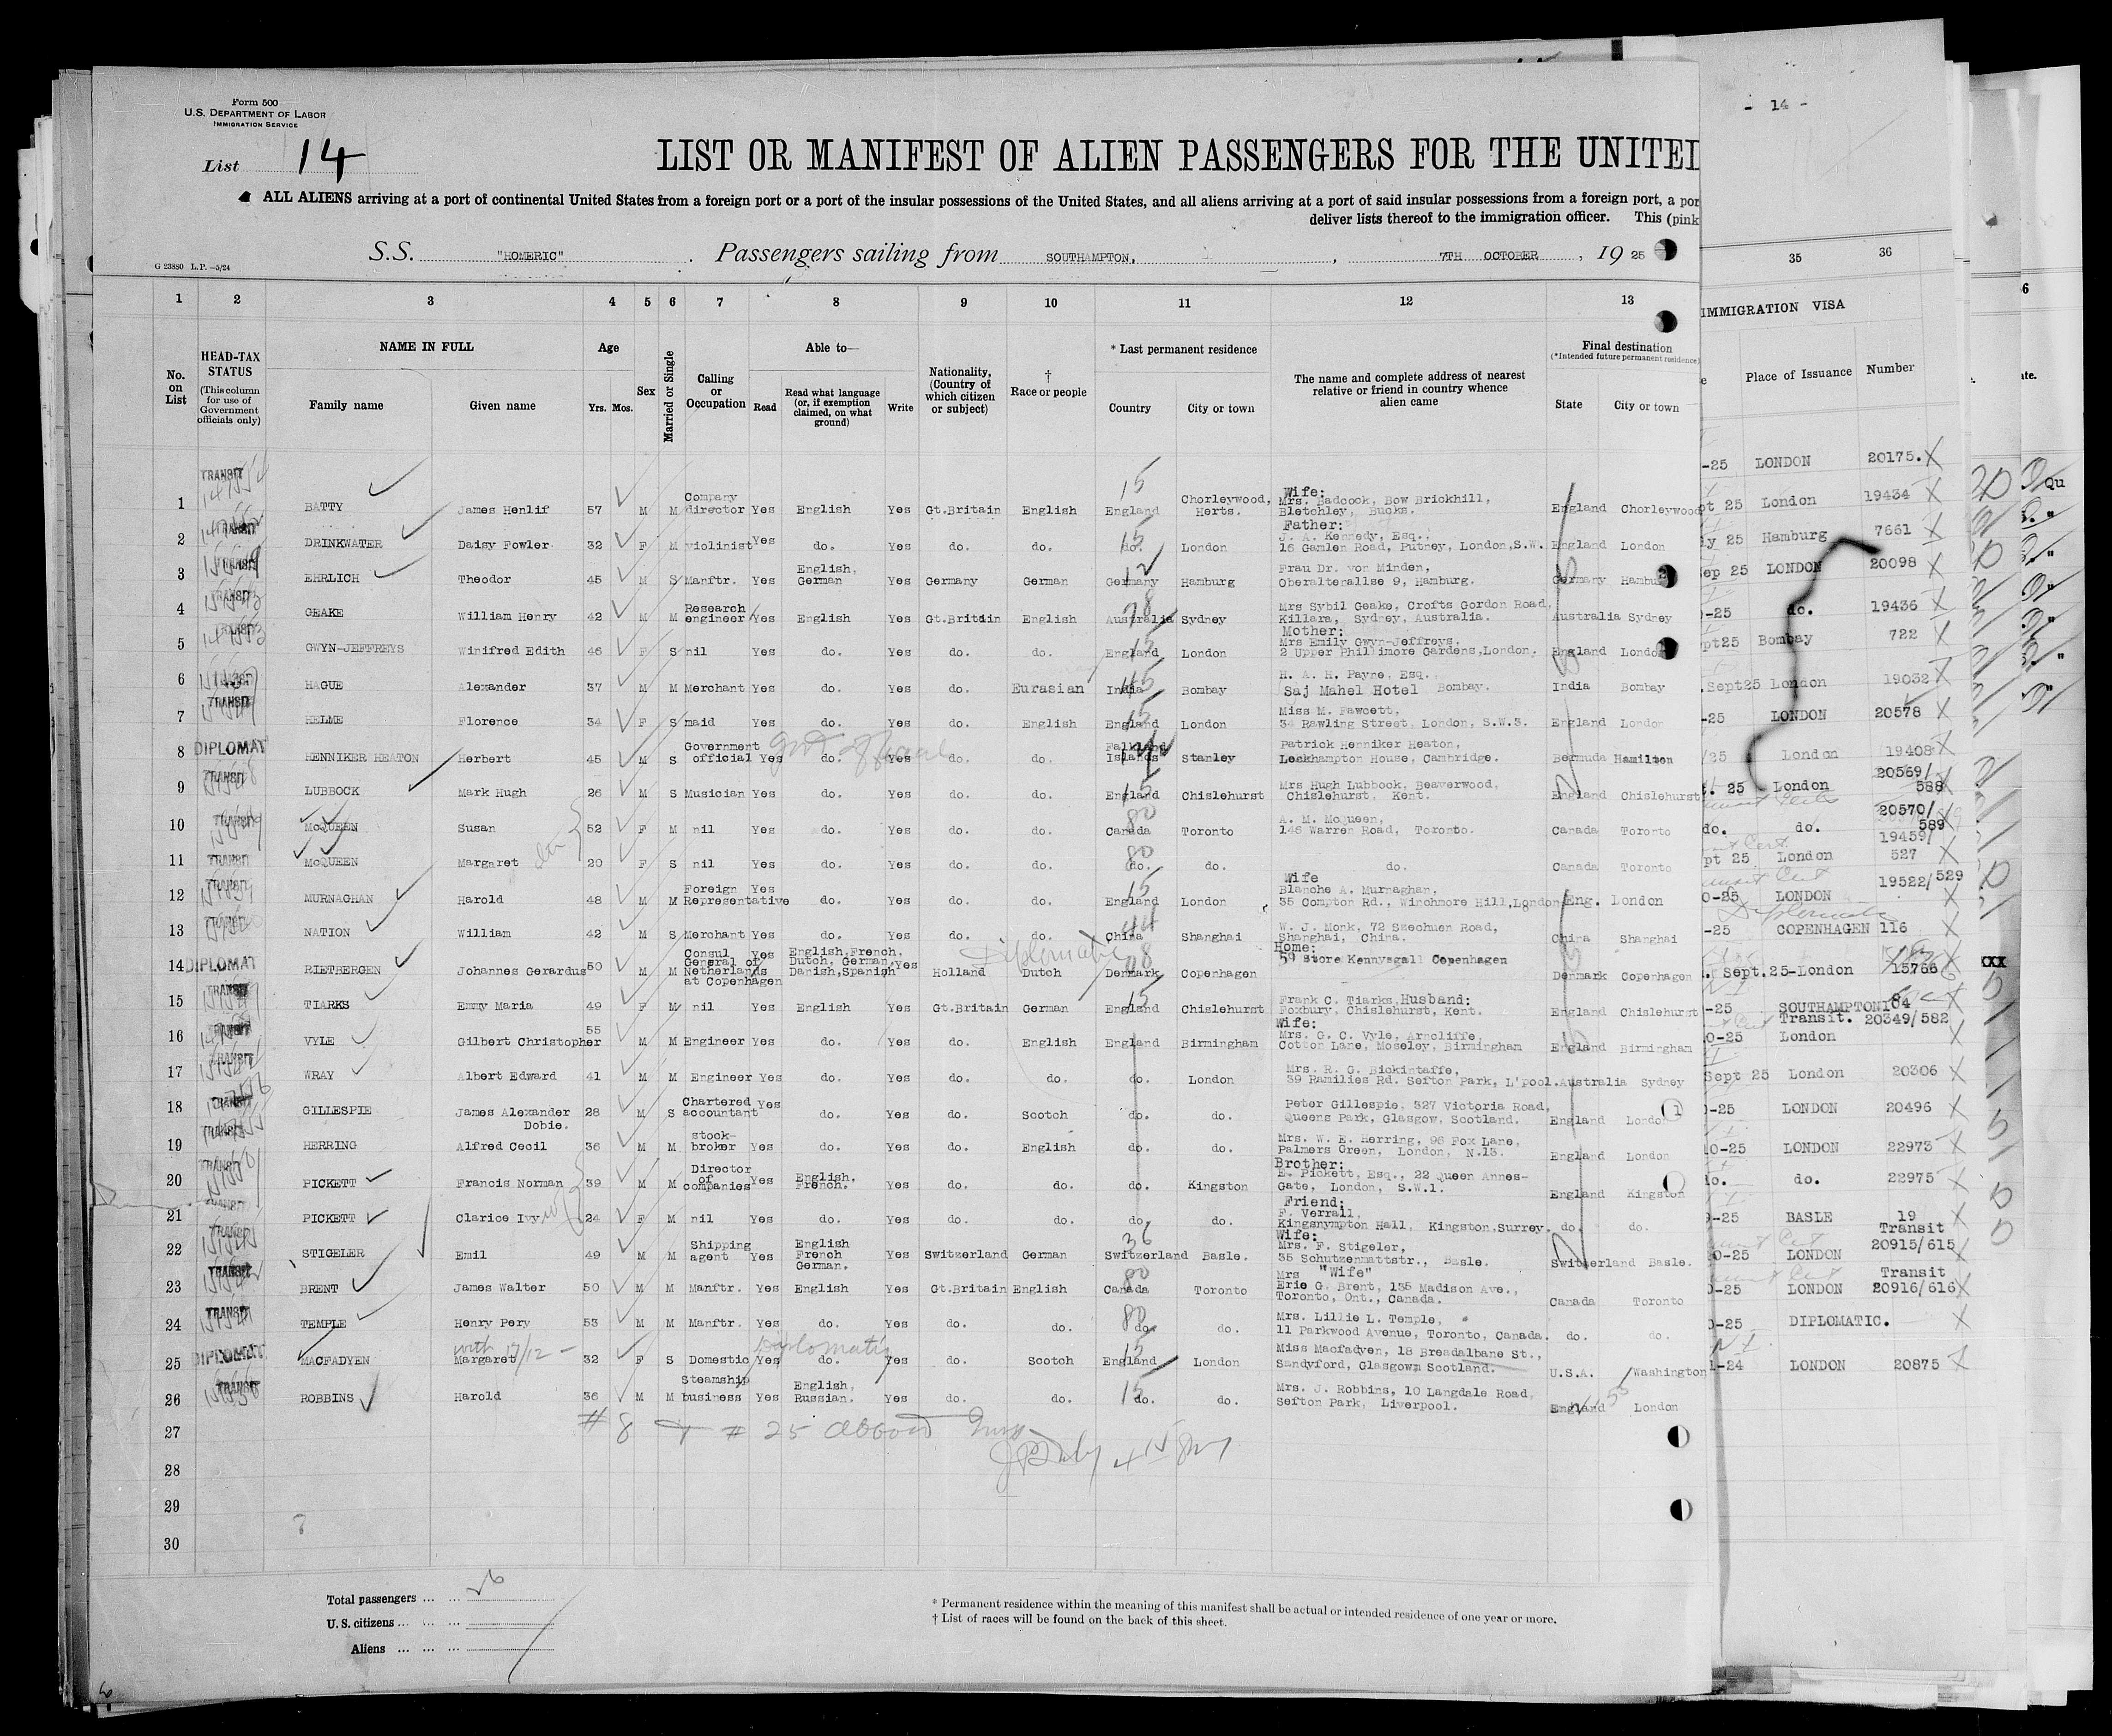 Form 500
U.S. DEPARTMENT OF LABOR
IMMIGRATION SERVICE
- 14 -
List 14
LIST OR MANIFEST OF ALIEN PASSENGERS FOR THE UNITED
ALL ALIENS arriving at a port of continental United States from a foreign port or a port of the insular possessions of the United States, and all aliens arriving at a port of said insular possessions from a foreign port, a por
deliver lists thereof to the immigration officer. This (pink
S.S. "HOMERIC" . Passengers sailing from SOUTHAMPTON, , 7TH OCTOBER , 19 25
G 23880 L.P.—5/24
1 2 3 4 5 6 7 8 9 10 11 12 13 35 36
No. on List
HEAD-TAX STATUS
(This column for use of Government officials only)
NAME IN FULL
Family name Given name
Age
Yrs. Mos.
Sex
Married or Single
Calling or Occupation
Able to—
Read Read what language (or, if exemption claimed, on what ground) Write
Nationality, (Country of which citizen or subject)
† Race or people
* Last permanent residence
Country City or town
The name and complete address of nearest relative or friend in country whence alien came
Final destination
(*Intended future permanent residence)
State City or town
IMMIGRATION VISA
Place of Issuance Number
1 TRANSIT BATTY James Henlif 57 M M Company director Yes English Yes Gt.Britain English England 15 Chorleywood, Herts. Wife: Mrs. Badcock, Bow Brickhill, Bletchley, Bucks. England Chorleywood
2 TRANSIT DRINKWATER Daisy Fowler 32 F M violinist Yes do. Yes do. do. do. 15 London Father: J. A. Kennedy, Esq., 16 Gamlen Road, Putney, London,S.W. England London
3 TRANSIT EHRLICH Theodor 45 M S Manftr. Yes English, German Yes Germany German Germany 12 Hamburg Frau Dr. von Minden, Oberalterallse 9, Hamburg. Germany Hamburg
4 TRANSIT GEAKE William Henry 42 M M Research engineer Yes English Yes Gt.Britain English Australia 78 Sydney Mrs Sybil Geake, Crofts Gordon Road, Killara, Sydney, Australia. Australia Sydney
5 TRANSIT GWYN-JEFFREYS Winifred Edith 46 F S nil Yes do. Yes do. do. England 15 London Mother: Mrs Emily Gwyn-Jeffreys, 2 Upper Phillimore Gardens,London. England London
6 TRANSIT HAGUE Alexander 37 M M Merchant Yes do. Yes do. Eurasian India 45 Bombay H. A. H. Payne, Esq. Saj Mahel Hotel Bombay. India Bombay
7 TRANSIT HELME Florence 34 F S maid Yes do. Yes do. English England 15 London Miss M. Fawcett, 34 Rawling Street, London, S.W.3. England London
8 DIPLOMAT HENNIKER HEATON Herbert 45 M S Government official Yes do. Yes do. do. Falkland Islands Stanley Patrick Henniker Heaton, Leckhampton House, Cambridge. Bermuda Hamilton
9 TRANSIT LUBBOCK Mark Hugh 26 M S Musician Yes do. Yes do. do. England 15 Chislehurst Mrs Hugh Lubbock, Beaverwood, Chislehurst, Kent. England Chislehurst
10 TRANSIT McQUEEN Susan 52 F M nil Yes do. Yes do. do. Canada 80 Toronto A. M. McQueen, 146 Warren Road, Toronto. Canada Toronto
11 TRANSIT McQUEEN Margaret 20 F S nil Yes do. Yes do. do. do. 80 do. do. Canada Toronto
12 TRANSIT MURNAGHAN Harold 48 M M Foreign Representative Yes do. Yes do. do. England 15 London Wife Blanche A. Murnaghan, 35 Compton Rd., Winchmore Hill,London Eng. London
13 TRANSIT NATION William 42 M S Merchant Yes do. Yes do. do. China 44 Shanghai W. J. Monk, 72 Szechuen Road, Shanghai, China. China Shanghai
14 DIPLOMAT RIETBERGEN Johannes Gerardus 50 M M Consul General of Netherlands at Copenhagen Yes English,French, Dutch, German, Danish,Spanish Yes Holland Dutch Diplomatic Denmark 08 Copenhagen Home: 59 Store Kennysgall Copenhagen Denmark Copenhagen
15 TRANSIT TIARKS Emmy Maria 49 F M nil Yes English Yes Gt.Britain German England 15 Chislehurst Frank C. Tiarks,Husband: Foxbury, Chislehurst, Kent. England Chislehurst
16 TRANSIT VYLE Gilbert Christopher 55 M M Engineer Yes do. Yes do. English England Birmingham Wife: Mrs. G. C. Vyle, Arncliffe, Cotton Lane, Moseley, Birmingham England Birmingham
17 TRANSIT WRAY Albert Edward 41 M M Engineer Yes do. Yes do. do. do. London Mrs. R. G. Bickintaffe, 39 Ramilies Rd. Sefton Park, L'pool. Australia Sydney
18 TRANSIT GILLESPIE James Alexander Dobie. 28 M S Chartered accountant Yes do. Yes do. Scotch do. do. Peter Gillespie, 327 Victoria Road, Queens Park, Glasgow, Scotland. England London
19 TRANSIT HERRING Alfred Cecil 36 M M stock-broker Yes do. Yes do. English do. do. Mrs. W. E. Herring, 96 Fox Lane, Palmers Green, London, N.13. England London
20 TRANSIT PICKETT Francis Norman 39 M M Director of companies Yes English, French. Yes do. do. do. Kingston Brother: E. Pickett, Esq., 22 Queen Annes-Gate, London, S.W.1. England Kingston
21 TRANSIT PICKETT Clarice Ivy 24 F M nil Yes do. Yes do. do. do. do. Friend: F. Verrall, Kingsnympton Hall, Kingston,Surrey. do. do.
22 TRANSIT STIGELER Emil 49 M M Shipping agent Yes English French German. Yes Switzerland German Switzerland 36 Basle. Wife: Mrs. F. Stigeler, 35 Schutzenmattstr., Basle. Switzerland Basle.
23 TRANSIT BRENT James Walter 50 M M Manftr. Yes English Yes Gt.Britain English Canada 80 Toronto Mrs "Wife" Erie G. Brent, 135 Madison Ave., Toronto, Ont., Canada. Canada Toronto
24 TRANSIT TEMPLE Henry Pery 53 M M Manftr. Yes do. Yes do. do. do. 80 do. Mrs. Lillie L. Temple, 11 Parkwood Avenue, Toronto, Canada. do. do.
25 DIPLOMAT MACFADYEN with 17/12 - Margaret 32 F S Domestic Yes Diplomatic do. Yes do. Scotch England 15 London Miss Macfadyen, 18 Breadalbane St., Sandyford, Glasgowm Scotland. U.S.A. Washington
26 TRANSIT ROBBINS Harold 36 M M Steamship business Yes English, Russian. Yes do. do. do. 15 do. Mrs. J. Robbins, 10 Langdale Road, Sefton Park, Liverpool. England London
27 # 8 + # 25
28
29
30
-25 LONDON 20175.
pt 25 London 19434
ly 25 Hamburg 7661
Sep 25 LONDON 20098
-25 do. 19436
pt25 Bombay 722
.Sept25 London 19032
-25 LONDON 20578
/25 London 19408
. 25 London 20569/588
do. do. 20570/589
pt 25 London 19459/527
0-25 LONDON 19522/529
-25 COPENHAGEN 116
. Sept.25-London 15766
-25 SOUTHAMPTON 104 Transit.
0-25 London 20349/582
Sept 25 London 20306
-25 LONDON 20496
10-25 LONDON 22973
do. do. 22975
9-25 BASLE 19
0-25 LONDON Transit 20915/615
-25 LONDON Transit 20916/616
0-25 DIPLOMATIC.
1-24 LONDON 20875
XXX
Total passengers ... ... 26
U.S. citizens ... ... ...
Aliens ... ... ...
* Permanent residence within the meaning of this manifest shall be actual or intended residence of one year or more.
† List of races will be found on the back of this sheet.